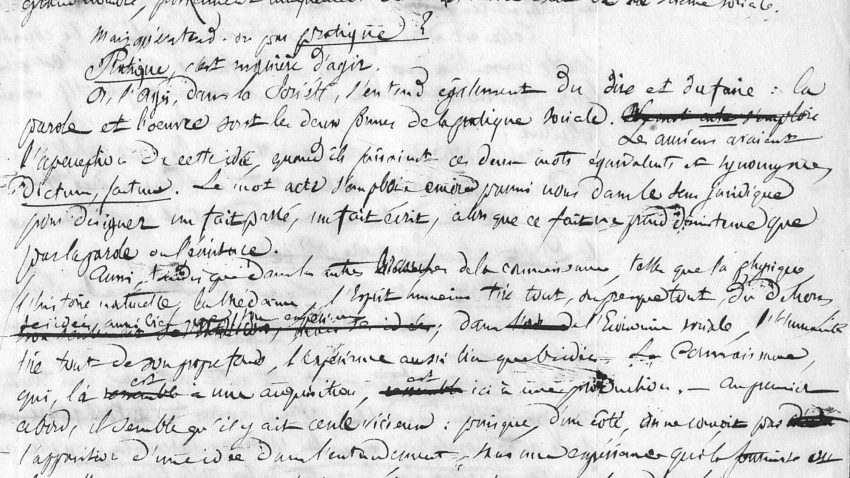 Mais qu'entend-on par pratique ?
Pratique, c'est manière d'agir.
Or, l'agir, dans la Société, s'entend également du dire et du faire : la
parole et l'œuvre sont les deux formes de la pratique sociale. Le mot acte s'emploie
Les anciens avaient
l'aperception de cette idée, quand ils faisaient ces deux mots équivalents et synonymes,
Dictum, factum. Le mot acte s'emploie encore parmi nous dans le sens juridique
pour désigner un fait passé, un fait écrit, alors que ce fait ne prend d'existence que
par la parole ou l'écriture.
Aussi, tandis que dans les autres branches de la connaissance, telles que la physique,
l'histoire naturelle, la médecine, l'Esprit humain tire tout, ou presque tout, du dehors,
ses idées aussi bien que son expérience
; dans l'Economie sociale, l'Humanité
tire tout de son propre fonds, l'expérience aussi bien que l'idée. La Connaissance,
est est
qui, là semble une acquisition, semble ici une production. — Au premier
abord, il semble qu'il y ait cercle vicieux : puisque, d'un côté, on ne conçoit pas
l'apparition d'une idée dans l'entendement, sans une expérience qui la